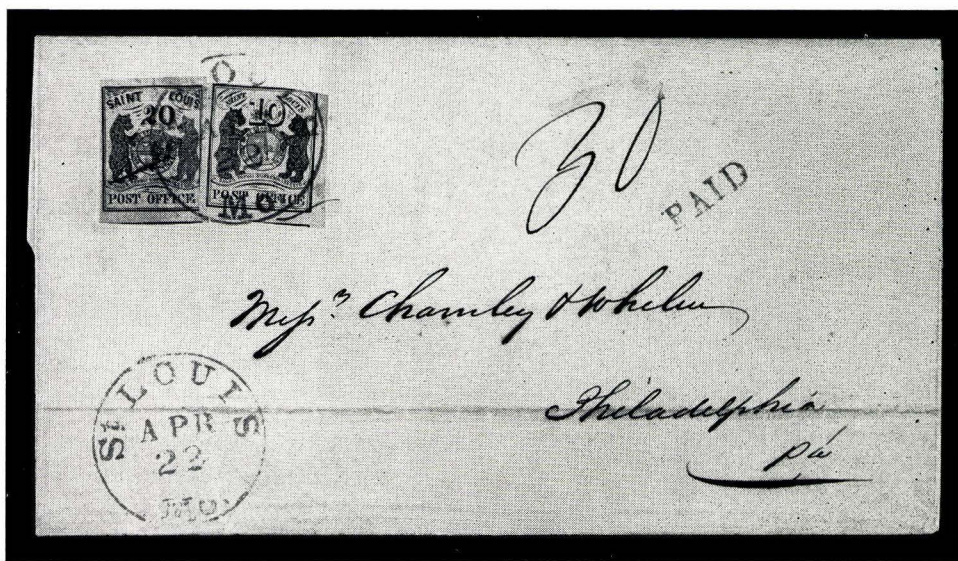 SAINT LOUIS
20
POST OFFICE
SAINT LOUIS
10
POST OFFICE
MO.
30
PAID
Messrs Charnley & Whelen
Philadelphia
Pa
ST LOUIS
APR
22
MO.